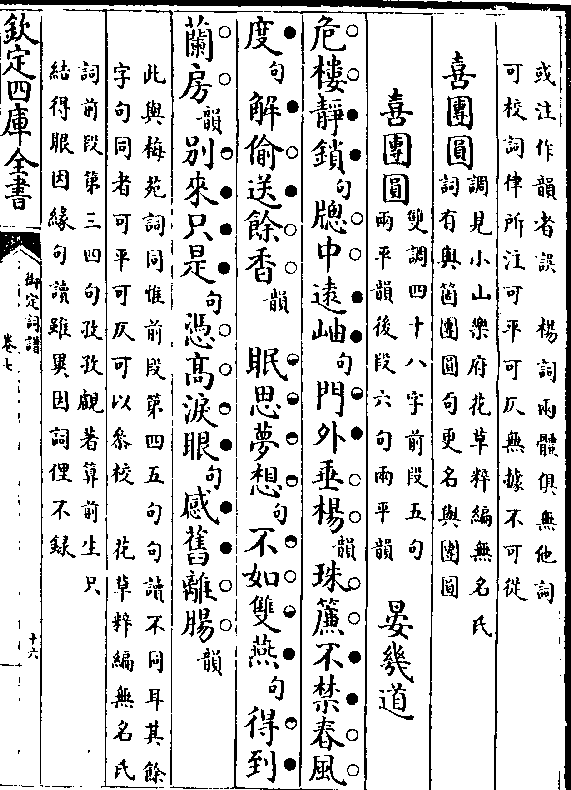 或注作韻者誤　楊詞兩體俱無他詞
可校詞律所注可平可仄無據不可從
喜團圓
調見小山樂府花草粹編無名氏
詞有與箇團圓句更名與團圓
喜團圓
雙調四十八字前段五句
兩平韻後段六句兩平韻
晏幾道
危樓靜鎖句牕中遠岫句門外垂楊韻珠簾不禁春風
度句解偷送餘香韻　眠思夢想句不如雙燕句得到
蘭房韻別來只是句憑高淚眼句感舊離腸韻
此與梅苑詞同惟前段第四五句句讀不同耳其餘
字句同者可平可仄可以叅校　花草粹編無名氏
詞前段第三四句孜孜覷著算前生只
結得眼因緣句讀雖異因詞俚不録
欽定四庫全書
御定詞譜
卷七
十六